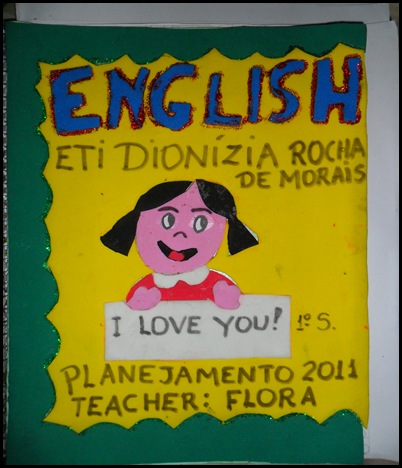 ENGLISH
ETI DIONÍZIA ROCHA
DE MORAIS
I LOVE YOU! 1º S.
PLANEJAMENTO 2011
TEACHER: FLORA